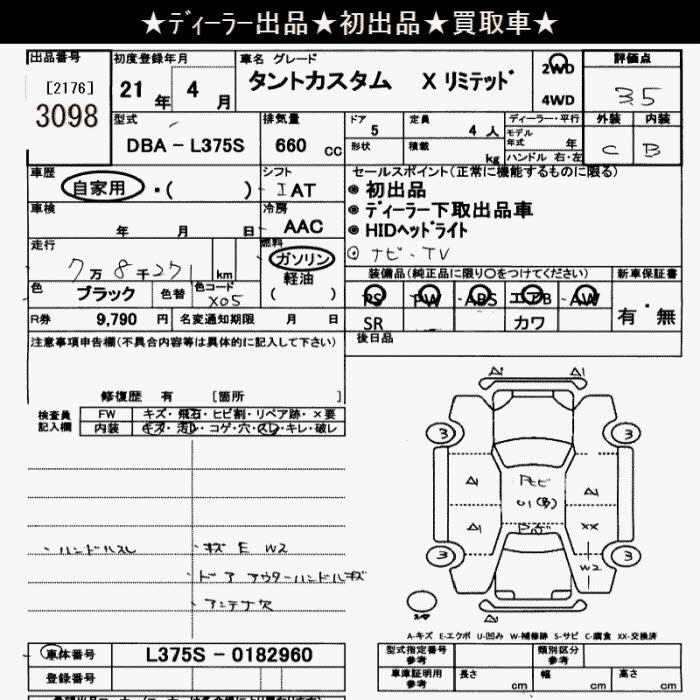 ★ディーラー出品★初出品★買取車★
出品番号 初度登録年月 車名 グレード 評価点
[2176] 3098 21年 4月 タントカスタム Xリミテッド 2WD 4WD 3.5
型式 排気量 ドア 定員 ディーラー・平行 外装 内装
DBA - L375S 660 cc 5 4人 モデル年式 年 C B
形状 積載 kg ハンドル 右・左
車歴 シフト セールスポイント(正常に機能するものに限る)
自家用 ・( ) IAT ◉ 初出品
車検 冷房 ◉ ディーラー下取出品車
年 月 日 AAC ◉ HIDヘッドライト
走行 燃料 ◎ ナビ・TV
7万8千271 km ガソリン 軽油 ( )
装備品(純正品に限り○をつけてください) 新車保証書
色 ブラック 色替 色コード X05 PS PW ABS エアB AW 有・無
R券 9,790 円 名変通知期限 月 日 SR カワ
注意事項申告欄(不具合内容等は具体的に記入して下さい) 後日品
修復歴 有 [箇所 ]
検査員記入欄 FW キズ・飛石・ヒビ割・リペア跡・×要
内装 キズ・汚れ・コゲ・穴・スレ・キレ・破レ
A1 A1
3 3
A1 A1
ナビ
A1 XX
W2
3 3
A1
・ハンドルスレ ・キズ E W2
・ドア アウターハンドルキズ
・アンテナ欠
A-キズ E-エクボ U-凹み W-補修跡 S-サビ C-腐食 XX-交換済
車体番号 L375S - 0182960 型式指定番号 参考 類別区分 参考
登録番号 車庫証明用 参考 長さ cm 幅 cm 高さ cm